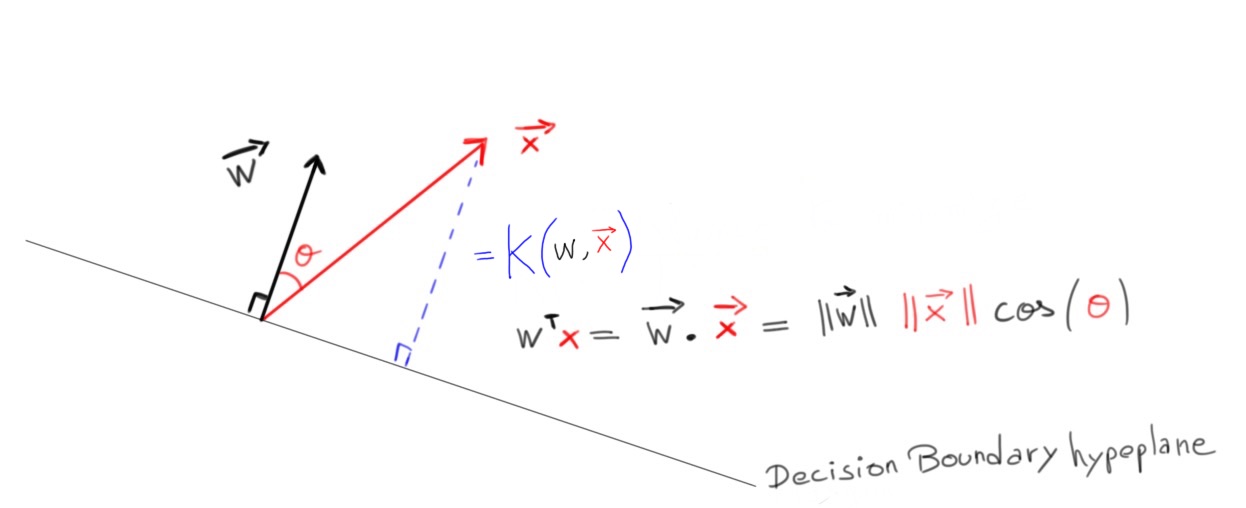 w⃗
x⃗
θ
= K(w, x⃗)
wᵀx = w⃗ . x⃗ = ||w⃗|| ||x⃗|| cos(θ)
Decision Boundary hypeplane